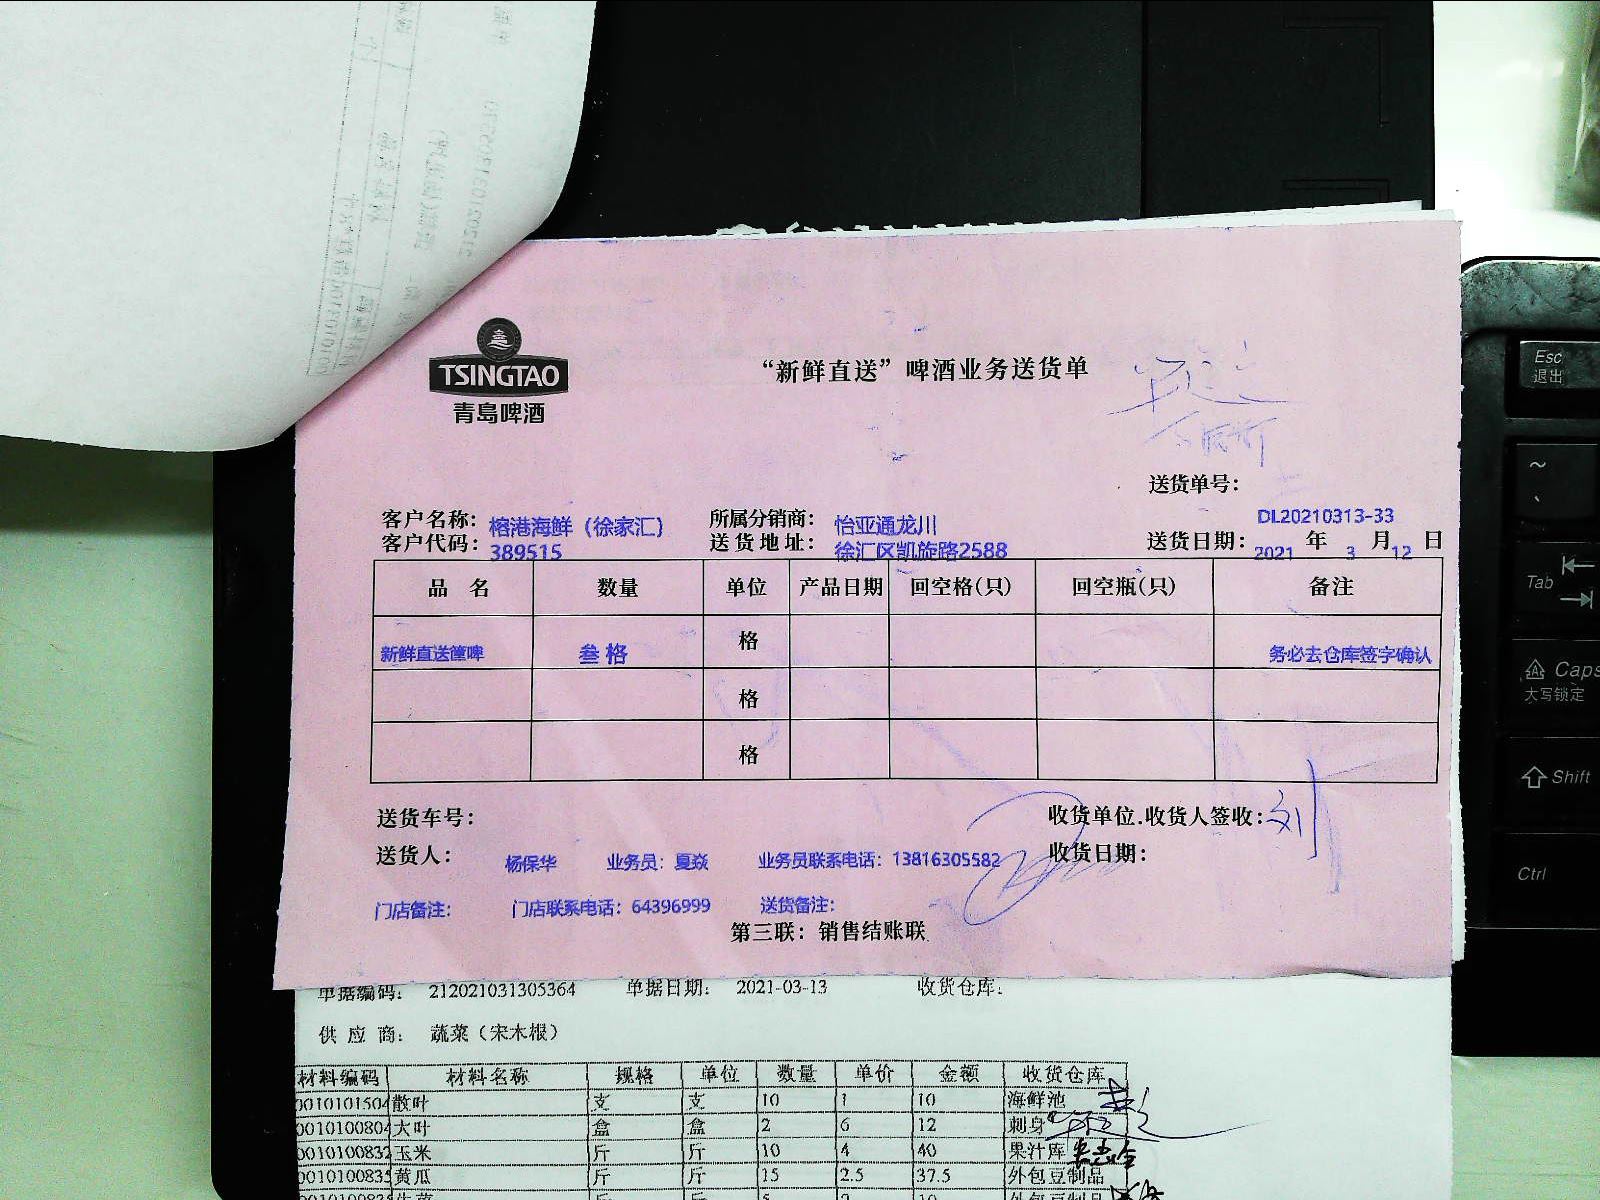 TSINGTAO
青島啤酒
“新鲜直送”啤酒业务送货单
送货单号：
DL20210313-33
客户名称：榕港海鲜（徐家汇） 所属分销商：怡亚通龙川
客户代码：389515 送货地址：徐汇区凯旋路2588 送货日期：2021 年 3 月 12 日
品 名 数量 单位 产品日期 回空格(只) 回空瓶(只) 备注
新鲜直送箽啤 叁格 格 务必去仓库签字确认
格
格
送货车号： 收货单位.收货人签收：刘
送货人：杨保华 业务员：夏焱 业务员联系电话：13816305582 收货日期：
门店备注： 门店联系电话：64396999 送货备注：
第三联：销售结账联
单据编码： 212021031305364 单据日期： 2021-03-13 收货仓库：
供 应 商： 蔬菜（宋木根）
材料编码 材料名称 规格 单位 数量 单价 金额 收货仓库
0010101504 散叶 支 支 10 1 10 海鲜池
0010100804 大叶 盒 盒 2 6 12 刺身
0010100832 玉米 斤 斤 10 4 40 果汁库
0010100835 黄瓜 斤 斤 15 2.5 37.5 外包豆制品
Esc
退出
~
Tab
Caps
大写锁定
Shift
Ctrl